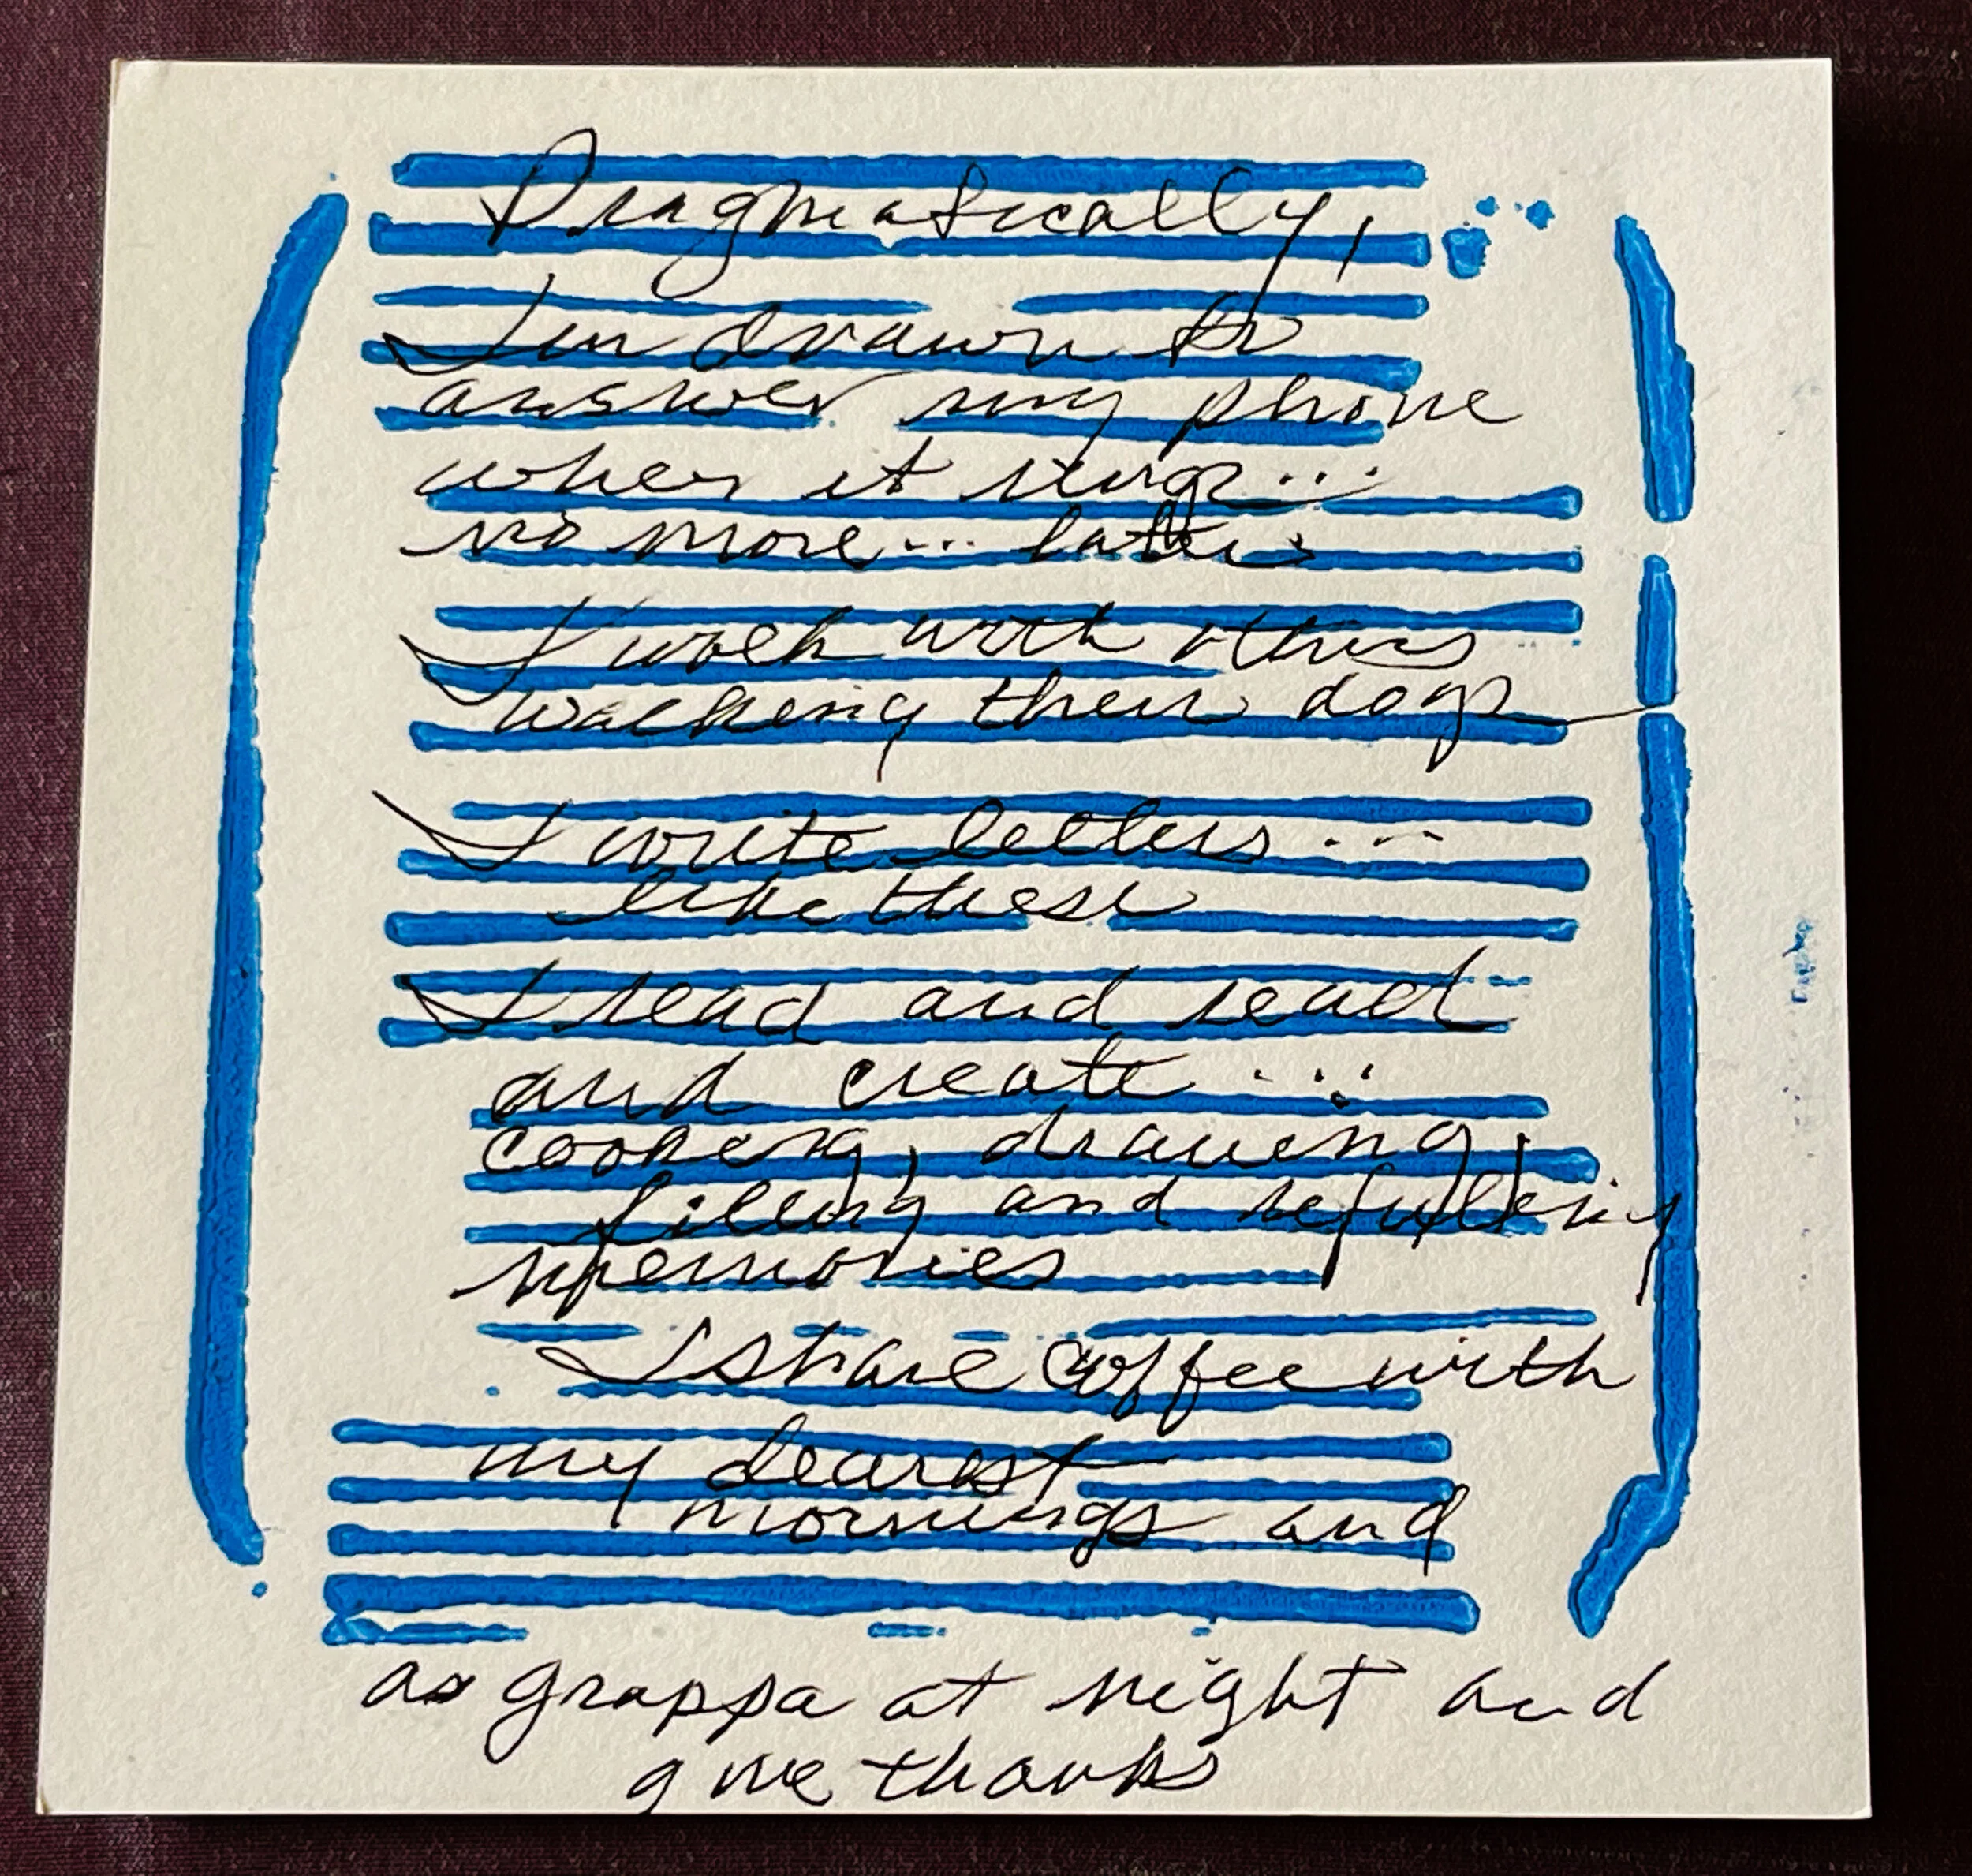 Pragmatically,
I'm drawn to
answer my phone
when it rings...
no more... later
I walk with others
walking their dogs
I write letters...
like these
I read and read
and create...
cooking, drawing,
filling and refilling
memories
I share coffee with
my dearest
mornings and
as grappa at night and
give thanks